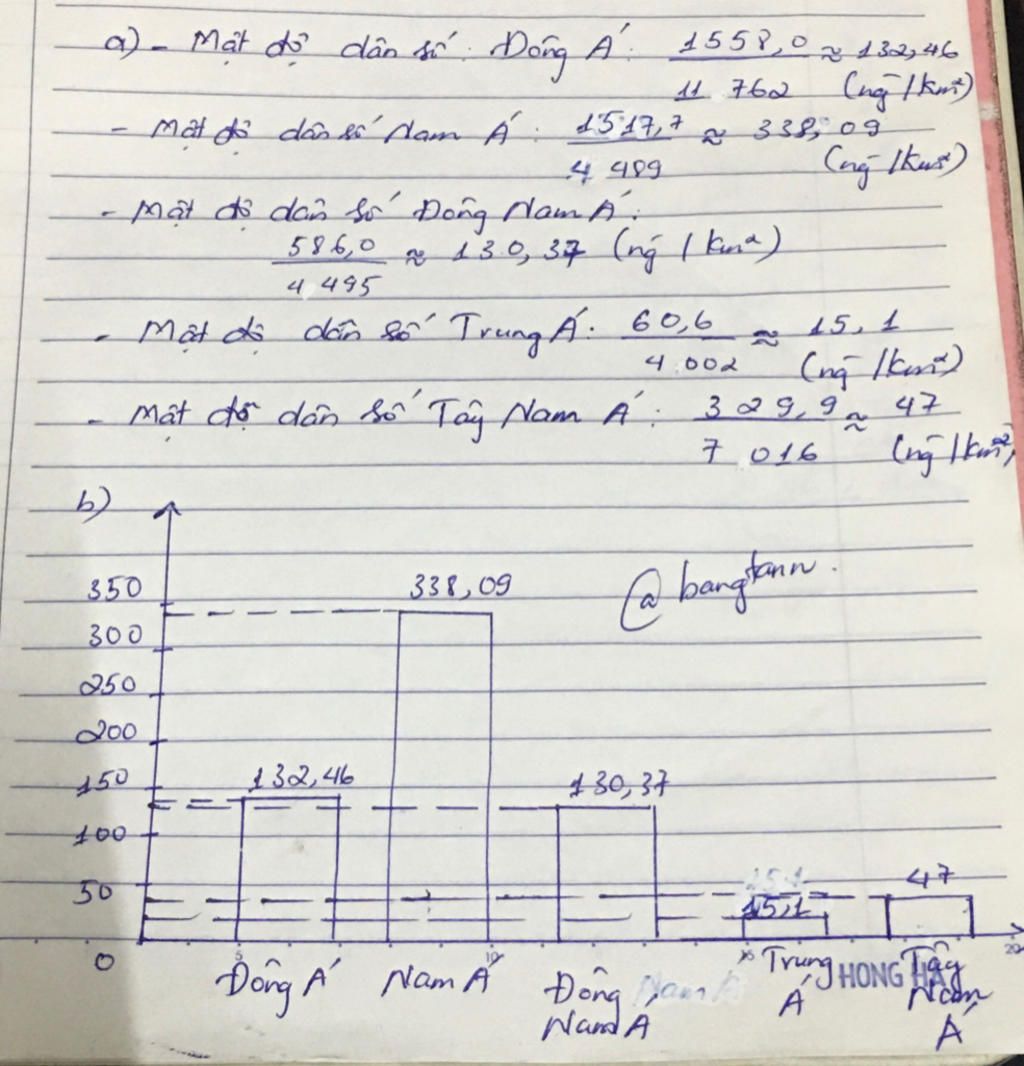 a) - Mật độ dân số: Đông Á: 1558,0 / 11 762 ≈ 132,46 (ng̃ / km²)
- Mật độ dân số Nam Á: 1517,7 / 4 489 ≈ 338,09 (ng̃ / km²)
- Mật độ dân số Đông Nam Á:
586,0 / 4 495 ≈ 130,37 (ng̃ / km²)
- Mật độ dân số Trung Á: 60,6 / 4.002 ≈ 15,1 (ng̃ / km²)
- Mật độ dân số Tây Nam Á: 329,9 / 7 016 ≈ 47 (ng̃ / km²)
b)
@bangtann.
350
338,09
300
250
200
150
132,46
130,37
100
50
15,1
15,1
47
0
5
10
15
20
Đông Á
Nam Á
Đông Nam Á
Nam Á
Trung Á
Tây Nam Á
HONG HA